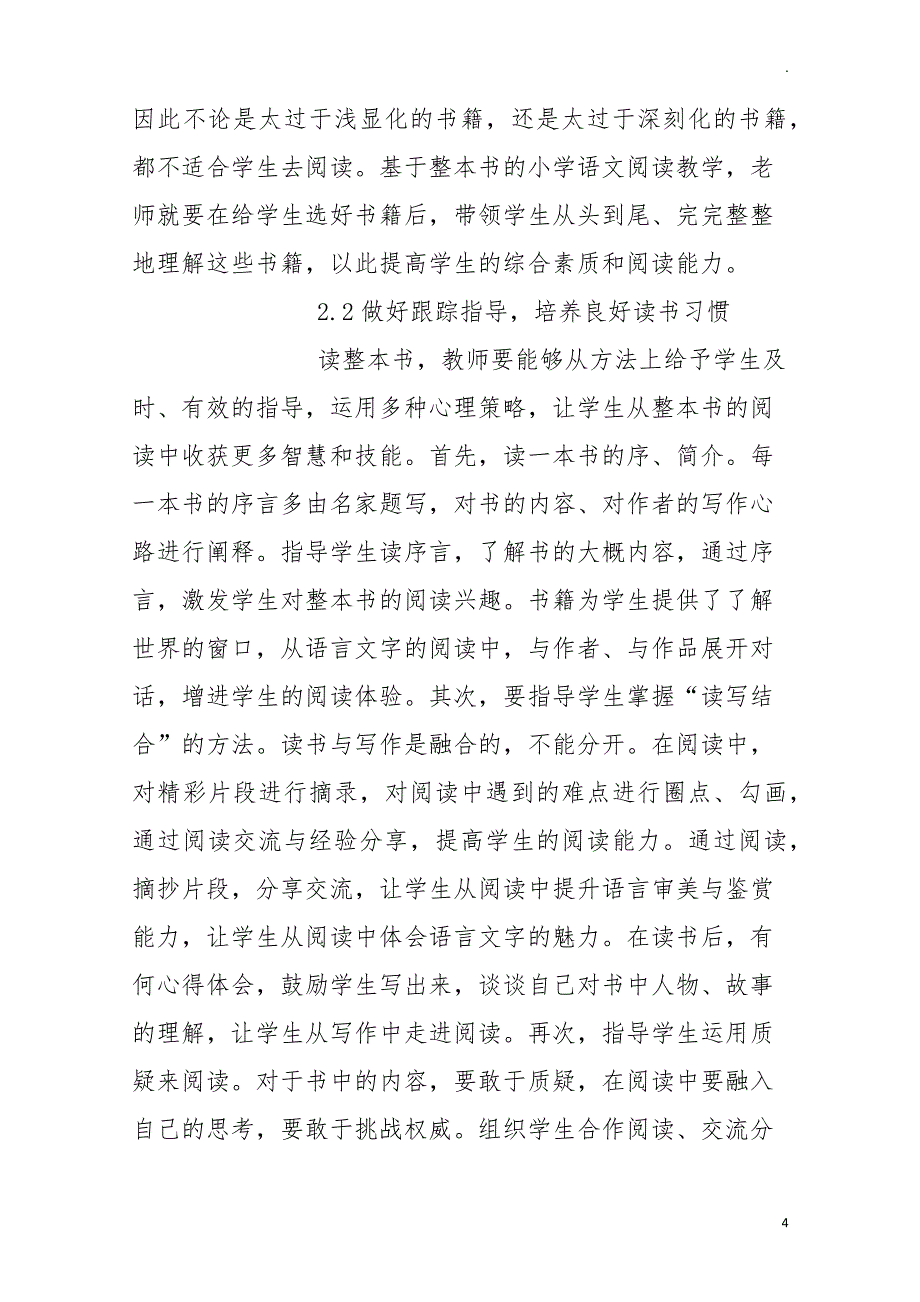 .
因此不论是太过于浅显化的书籍，还是太过于深刻化的书籍，
都不适合学生去阅读。基于整本书的小学语文阅读教学，老
师就要在给学生选好书籍后，带领学生从头到尾、完完整整
地理解这些书籍，以此提高学生的综合素质和阅读能力。
2.2 做好跟踪指导，培养良好读书习惯
读整本书，教师要能够从方法上给予学生及
时、有效的指导，运用多种心理策略，让学生从整本书的阅
读中收获更多智慧和技能。首先，读一本书的序、简介。每
一本书的序言多由名家题写，对书的内容、对作者的写作心
路进行阐释。指导学生读序言，了解书的大概内容，通过序
言，激发学生对整本书的阅读兴趣。书籍为学生提供了了解
世界的窗口，从语言文字的阅读中，与作者、与作品展开对
话，增进学生的阅读体验。其次，要指导学生掌握“读写结
合”的方法。读书与写作是融合的，不能分开。在阅读中，
对精彩片段进行摘录，对阅读中遇到的难点进行圈点、勾画，
通过阅读交流与经验分享，提高学生的阅读能力。通过阅读，
摘抄片段，分享交流，让学生从阅读中提升语言审美与鉴赏
能力，让学生从阅读中体会语言文字的魅力。在读书后，有
何心得体会，鼓励学生写出来，谈谈自己对书中人物、故事
的理解，让学生从写作中走进阅读。再次，指导学生运用质
疑来阅读。对于书中的内容，要敢于质疑，在阅读中要融入
自己的思考，要敢于挑战权威。组织学生合作阅读、交流分
4